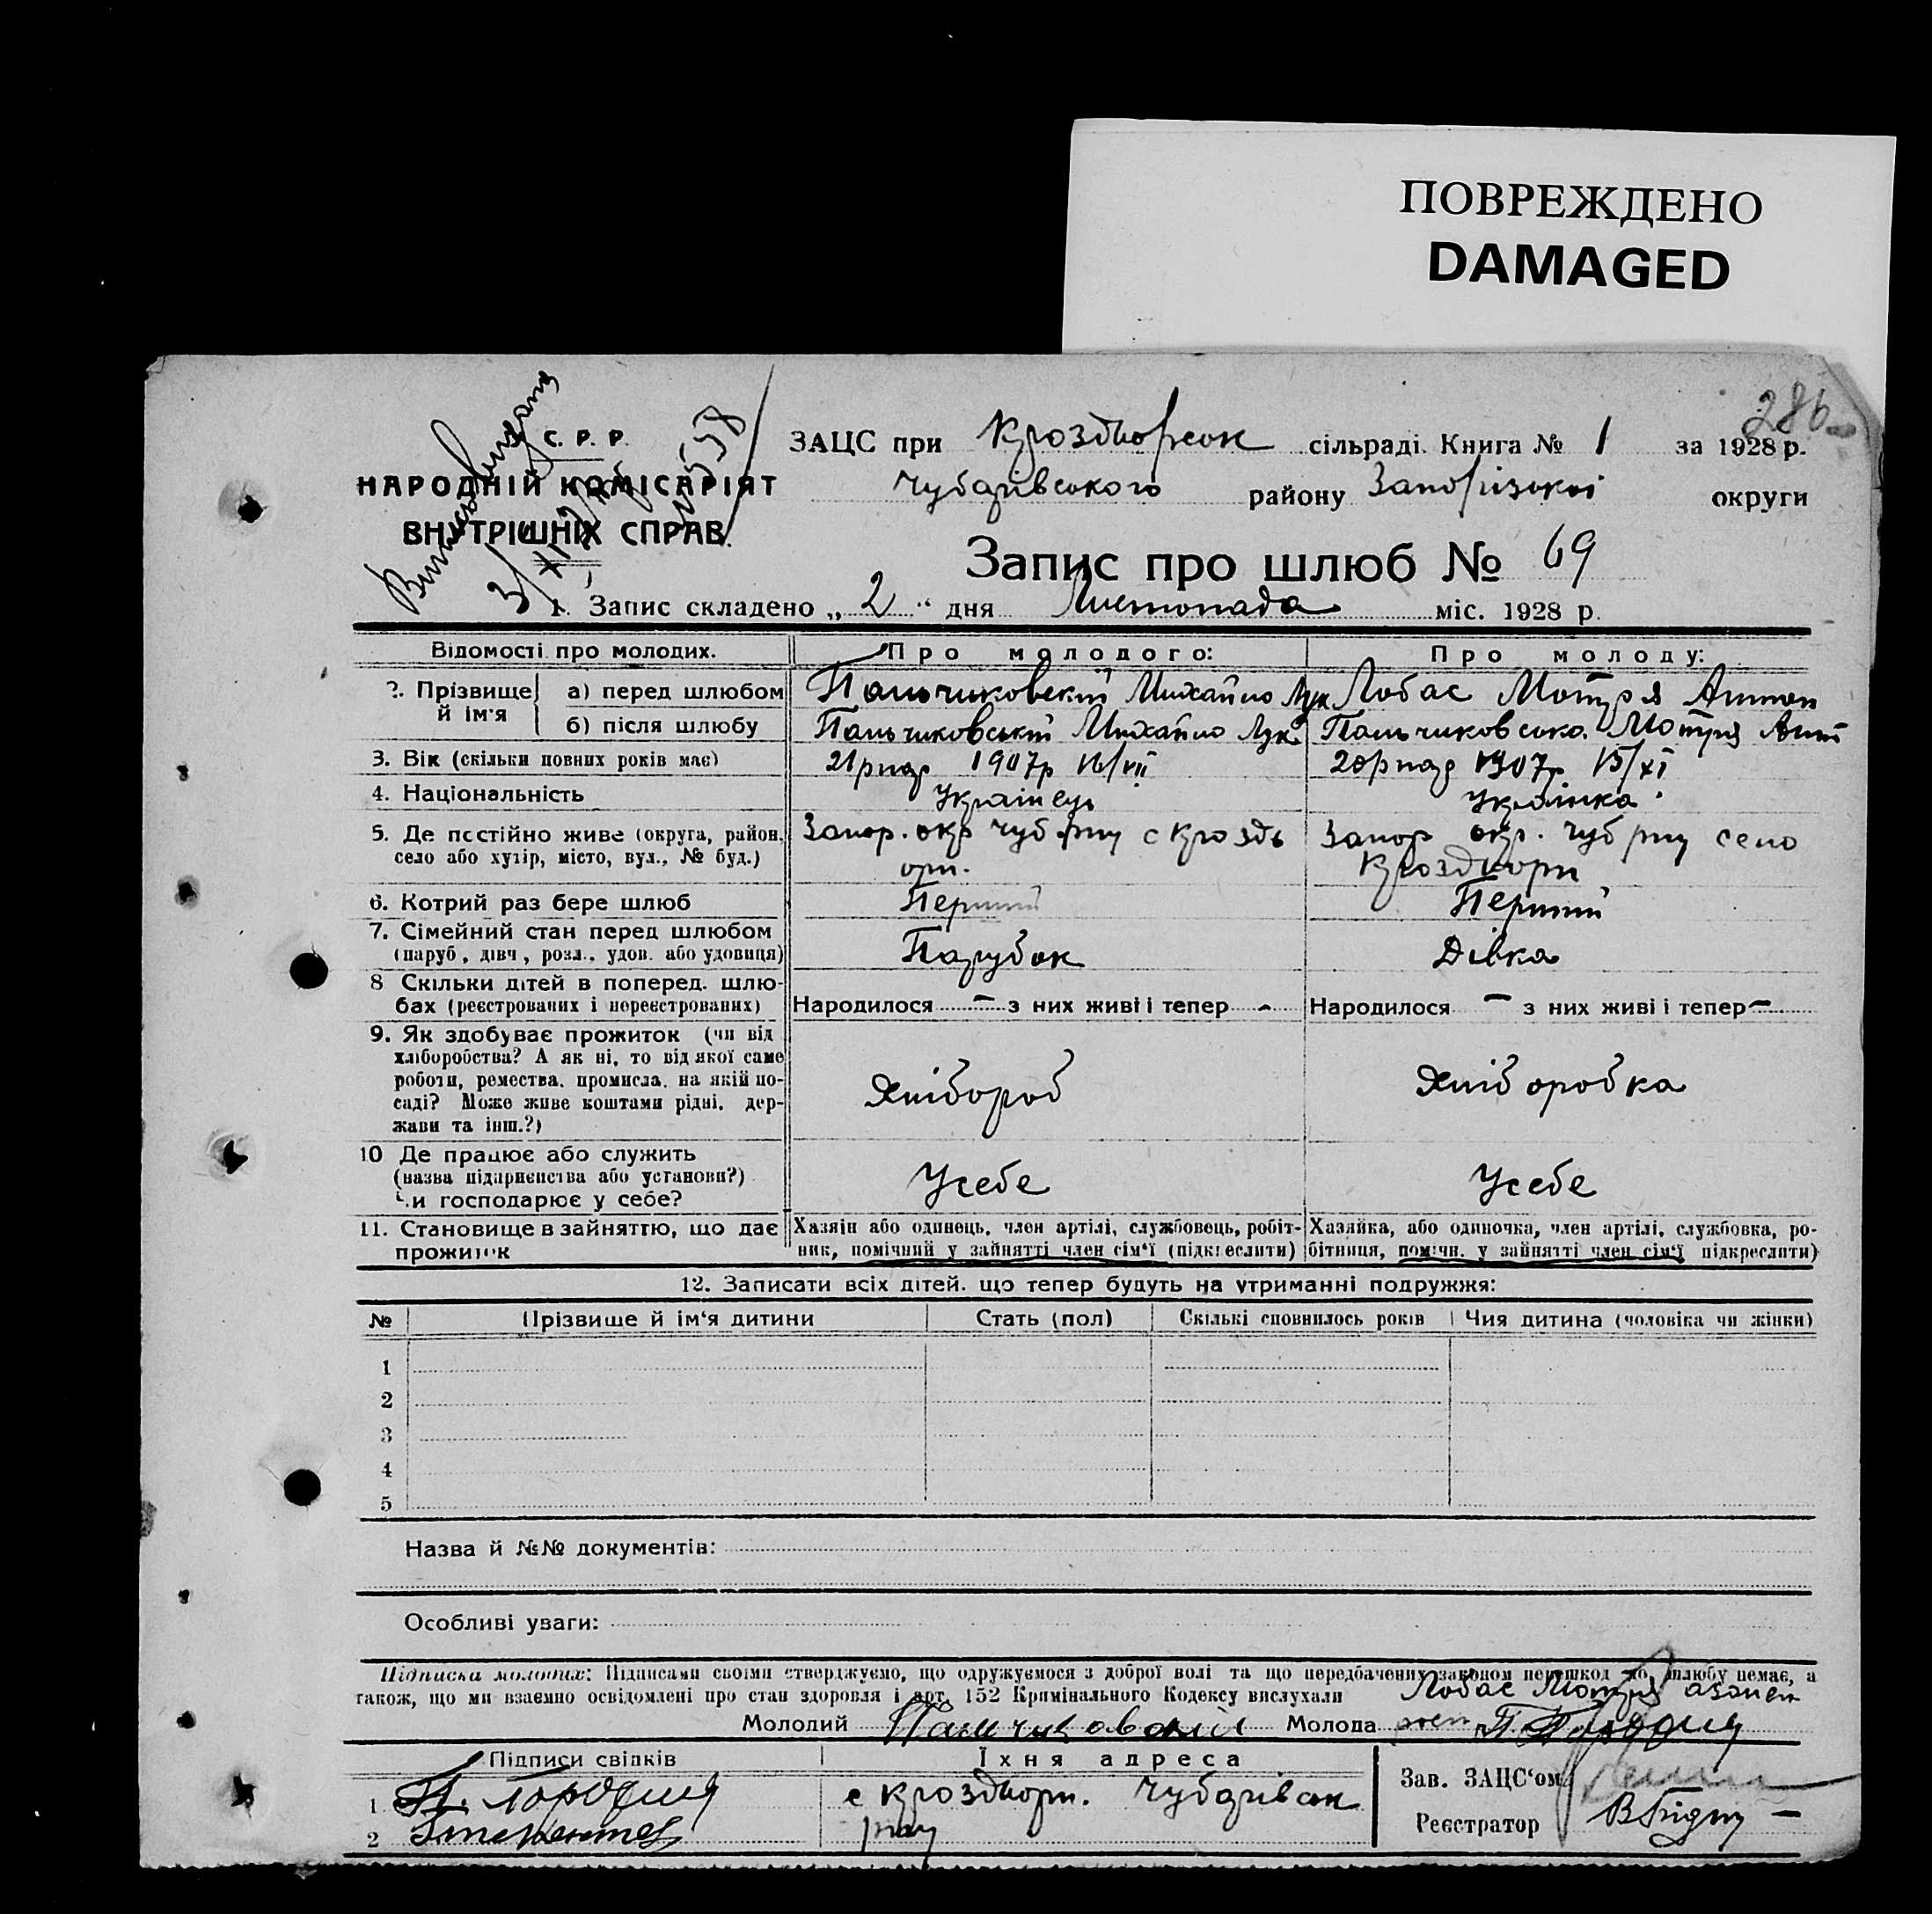 ПОВРЕЖДЕНО
DAMAGED
286
С. Р. Р.
НАРОДНІЙ КОМІСАРІЯТ
ВНУТРІШНІХ СПРАВ.
ЗАЦС при сільраді. Книга № 1 за 1928 р.
Чубарівського району Запорізької округи
Запис про шлюб № 69
1. Запис складено „ 2 “ дня Листопада міс. 1928 р.
Відомості про молодих. Про молодого: Про молоду:
2. Прізвище й ім'я а) перед шлюбом Пальчиковский Михайло Лук Лобас Мотря Антон
б) після шлюбу Пальчиковський Михайло Лук Пальчиковська Мотря Ант
3. Вік (скільки повних років має) 21 рпар 1907р 16/VII 20рпар 1907р 15/XI
4. Національність Українець Українка
5. Де постійно живе (округа, район, Запор. окр Чуб. рну с Кроздь Запор окр. Чуб рну село
село або хутір, місто, вул., № буд.) орп. Кроздворп
6. Котрий раз бере шлюб Перший Перший
7. Сімейний стан перед шлюбом
(паруб., дівч., розл., удов. або удовиця) Парубок Дівка
8 Скільки дітей в поперед. шлю-
бах (реєстрованих і нереєстрованих) Народилося — з них живі і тепер - Народилося — з них живі і тепер —
9. Як здобуває прожиток (чи від
хліборобства? А як ні, то від якої саме
роботи, ремества, промисла, на якій по- Хлібороб Хліборобка
саді? Може живе коштами рідні, дер-
жави та інш.?)
10 Де працює або служить
(назва підприємства або установи?) Усебе Усебе
Чи господарює у себе?
11. Становище в зайняттю, що дає Хазяїн або одинець, член артілі, службовець, робіт- Хазяйка, або одиночка, член артілі, службовка, ро-
прожиток ник, помічний у зайнятті член сім'ї (підкреслити) бітниця, помічн. у зайнятті член сім'ї підкреслити)
12. Записати всіх дітей. що тепер будуть на утриманні подружжя:
№ Прізвище й ім'я дитини Стать (пол) Скількі сповнилось років Чия дитина (чоловіка чи жінки)
1
2
3
4
5
Назва й №№ документів:
Особливі уваги:
Підписка молодих: Підписами своїми стверджуємо, що одружуємося з доброї волі та що передбачених законом перешкод до шлюбу немає, а
також, що ми взаємно освідомлені про стан здоровля і арт. 152 Кримінального Кодексу вислухали Лобас Мотря
Молодий Молода
Підписи свідків Їхня адреса Зав. ЗАЦС'ом
1 с Кроздворп. Чубарівск
2 рну Реєстратор